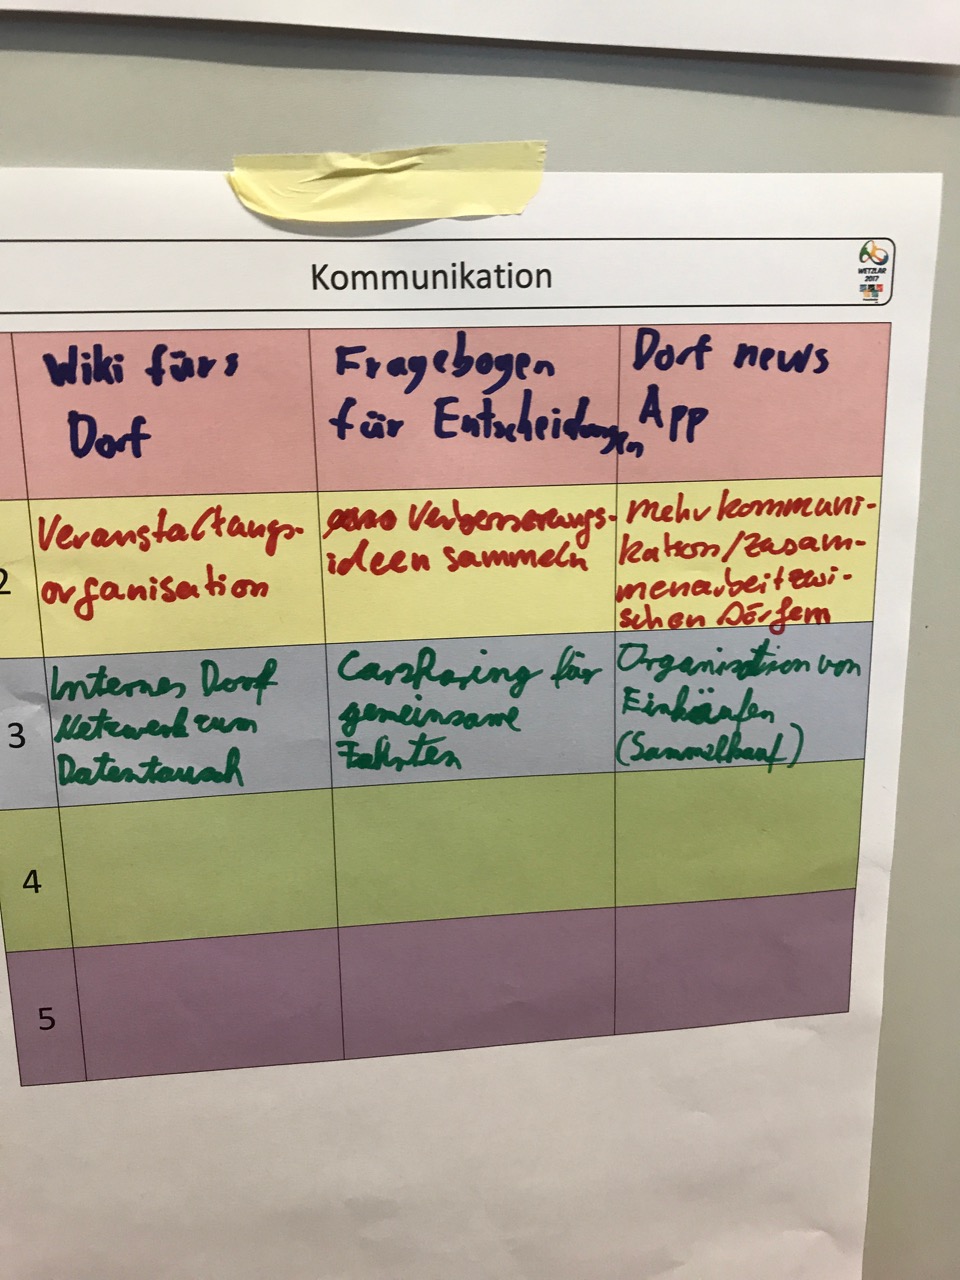 Kommunikation
WETZLAR
2017
Wiki fürs
Dorf
Fragebogen
für Entscheidungen
Dorf news
App
2
Veranstaltungs-
organisation
Verbesserungs-
ideen sammeln
mehr kommuni-
kation/zusam-
menarbeit zwi-
schen Dörfern
3
Internes Dorf
Netzwerk zum
Datentausch
Carsharing für
gemeinsame
Fahrten
Organisation von
Einkäufen
(Sammelkauf)
4
5